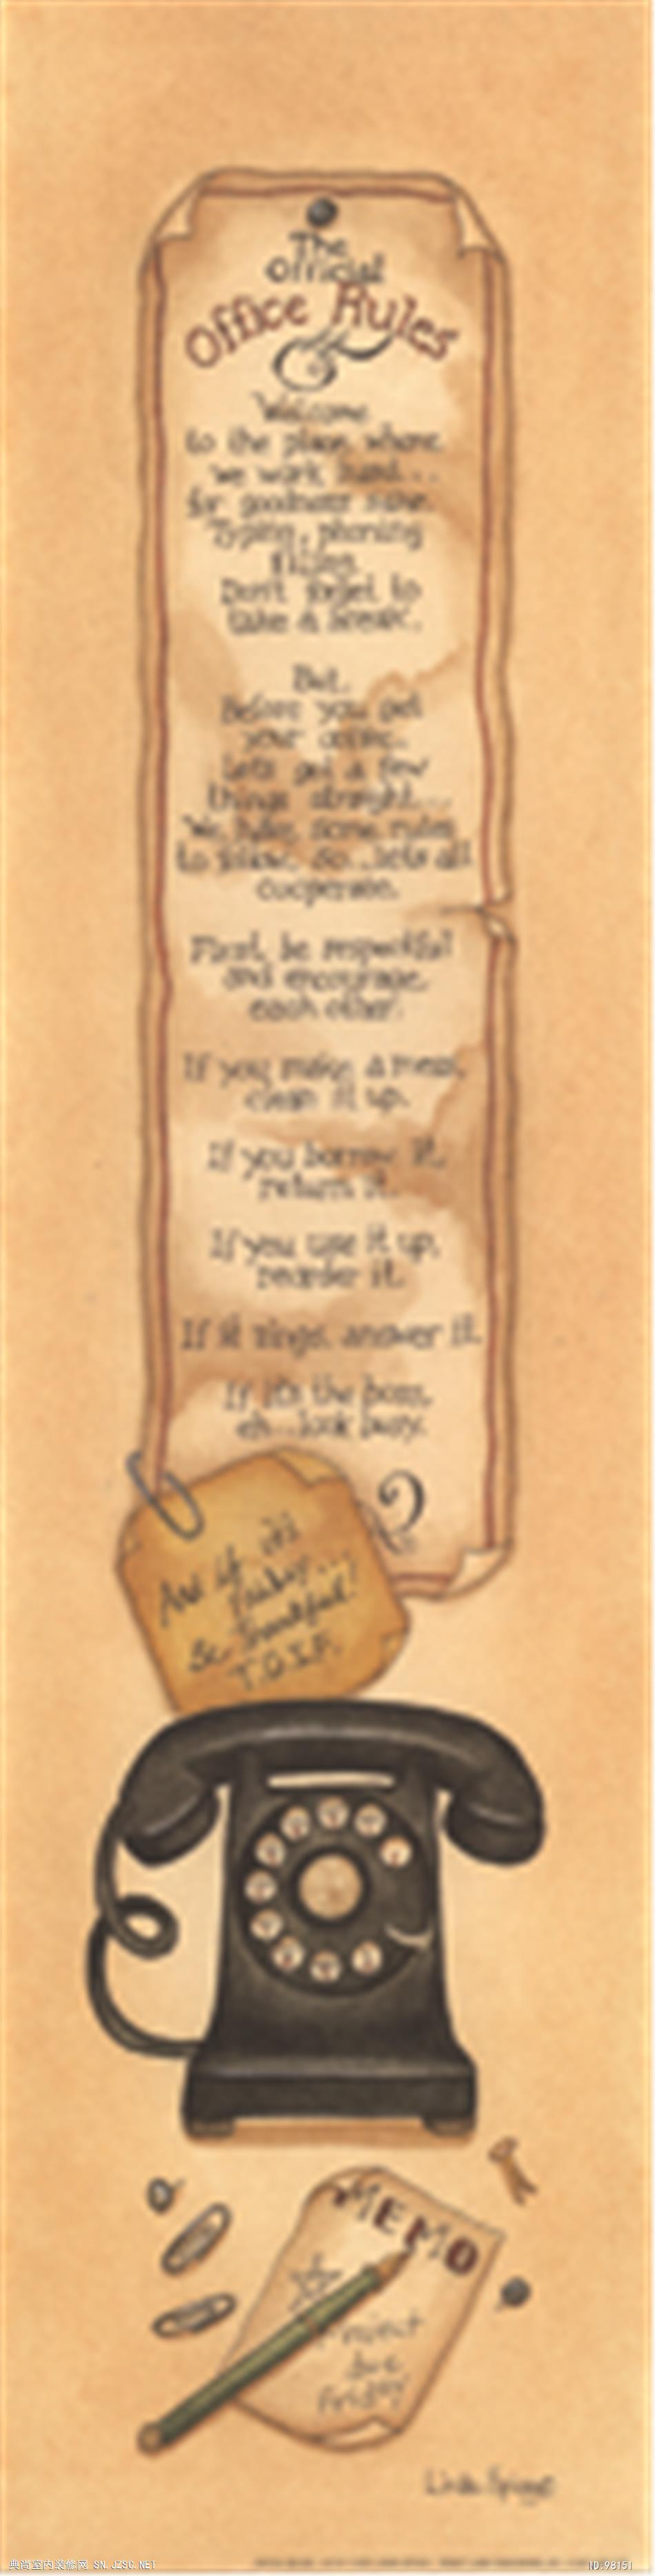 The
Official
Office Rules
Welcome
to the place where
we work hard...
for goodness sake.
Typing, phoning
filing.
Don't forget to
take a break.
But,
Before you get
your
Lets get a few
things straight...
We have some rules
to follow. So...lets all
cooperate.
First, be respectful
and encourage
each other.
If you make a mess,
clean it up.
If you borrow it,
return it.
If you use it up,
reorder it.
If it rings, answer it.
If it's the boss,
eh...look busy.
And if it's
Friday...
Be thankful!
T.G.I.F.
MEMO
Project
due
Friday
Linda Spivey
典尚室内装修网 SN.JZSC.NET
ID:98151